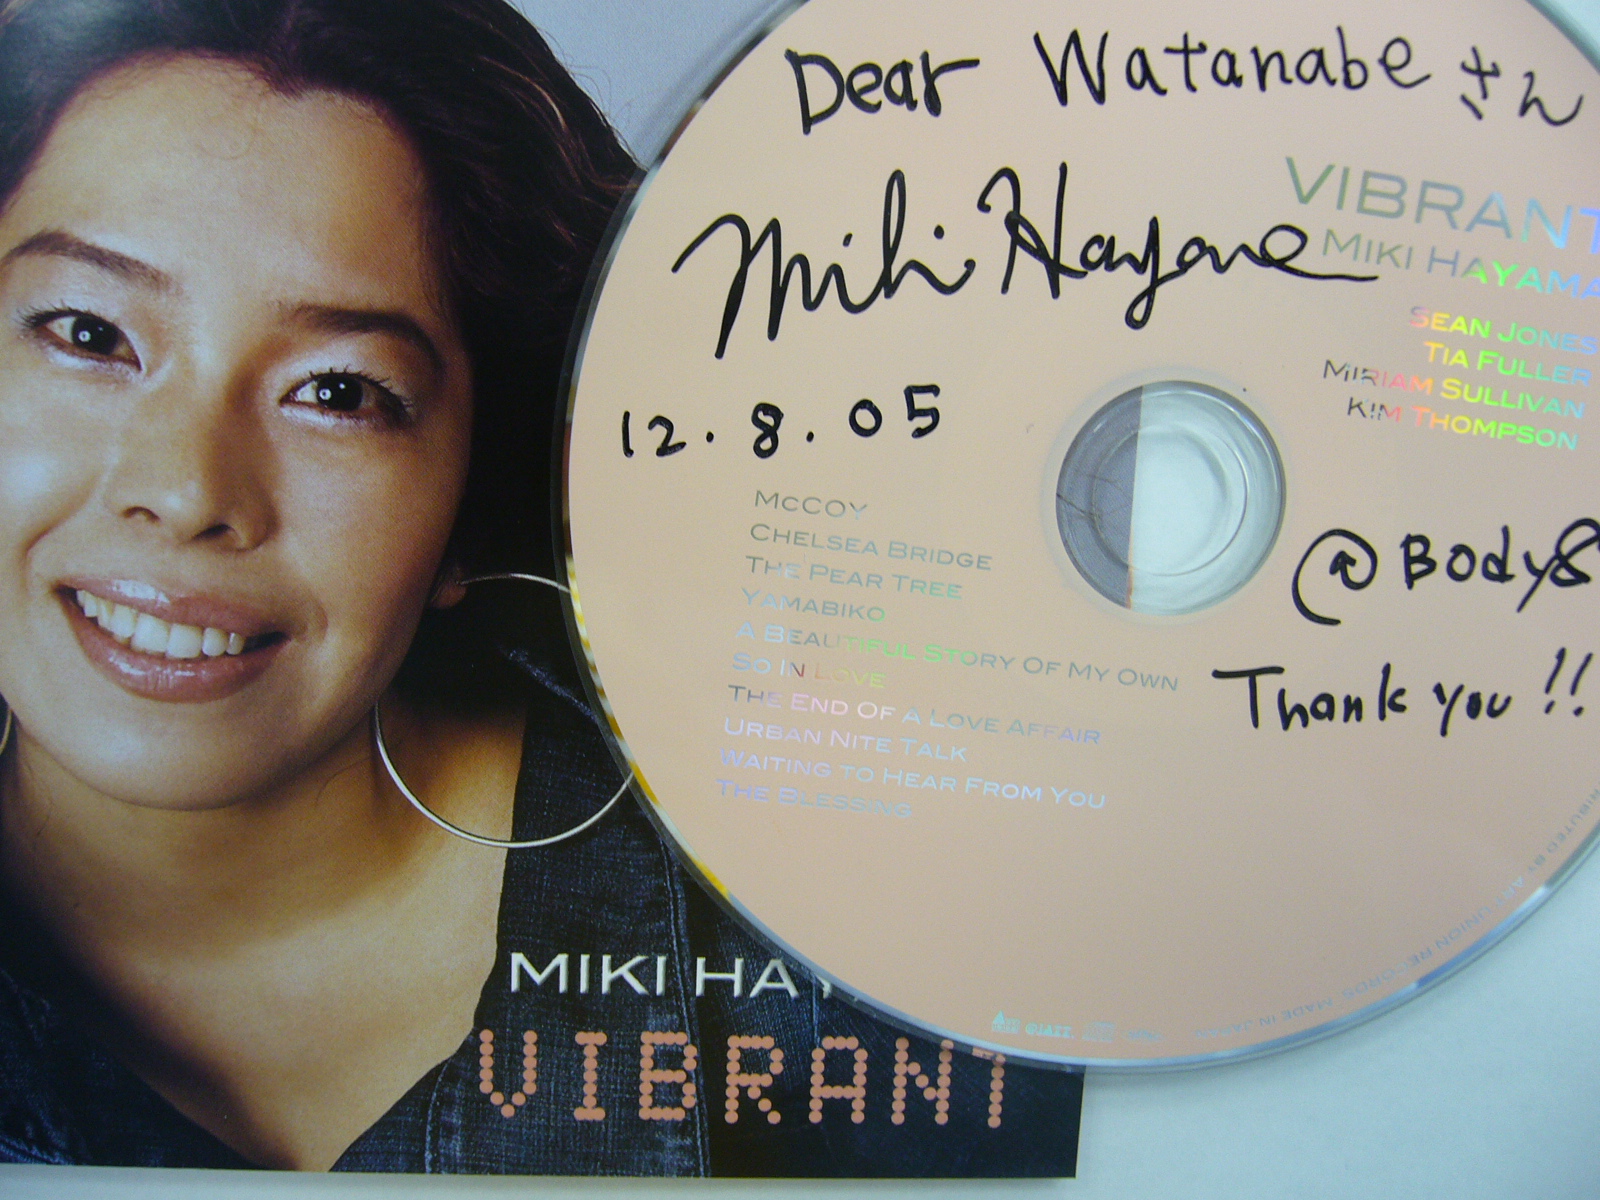 Dear Watanabe さん
Miki Hayama
12.8.05
VIBRANT
MIKI HAYAMA
SEAN JONES
TIA FULLER
MIRIAM SULLIVAN
KIM THOMPSON
McCOY
CHELSEA BRIDGE
THE PEAR TREE
YAMABIKO
A BEAUTIFUL STORY OF MY OWN
SO IN LOVE
THE END OF A LOVE AFFAIR
URBAN NITE TALK
WAITING TO HEAR FROM YOU
THE BLESSING
@Body&
Thank you!!
MIKI HAYA
VIBRANT
TRIBUTED BY ART UNION RECORDS. MADE IN JAPAN